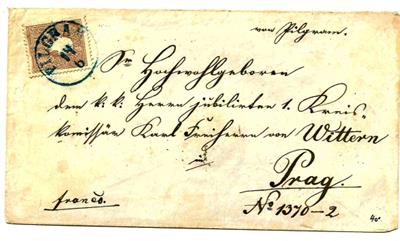 PILGRAM
14
6
von Pilgram.
Sr Hochwohlgeboren
dem k. k. Herrn jubilirten 1. Kreis-
komissär Karl Freiherrn von Wittern
in
Prag.
franco.
No 1370-2